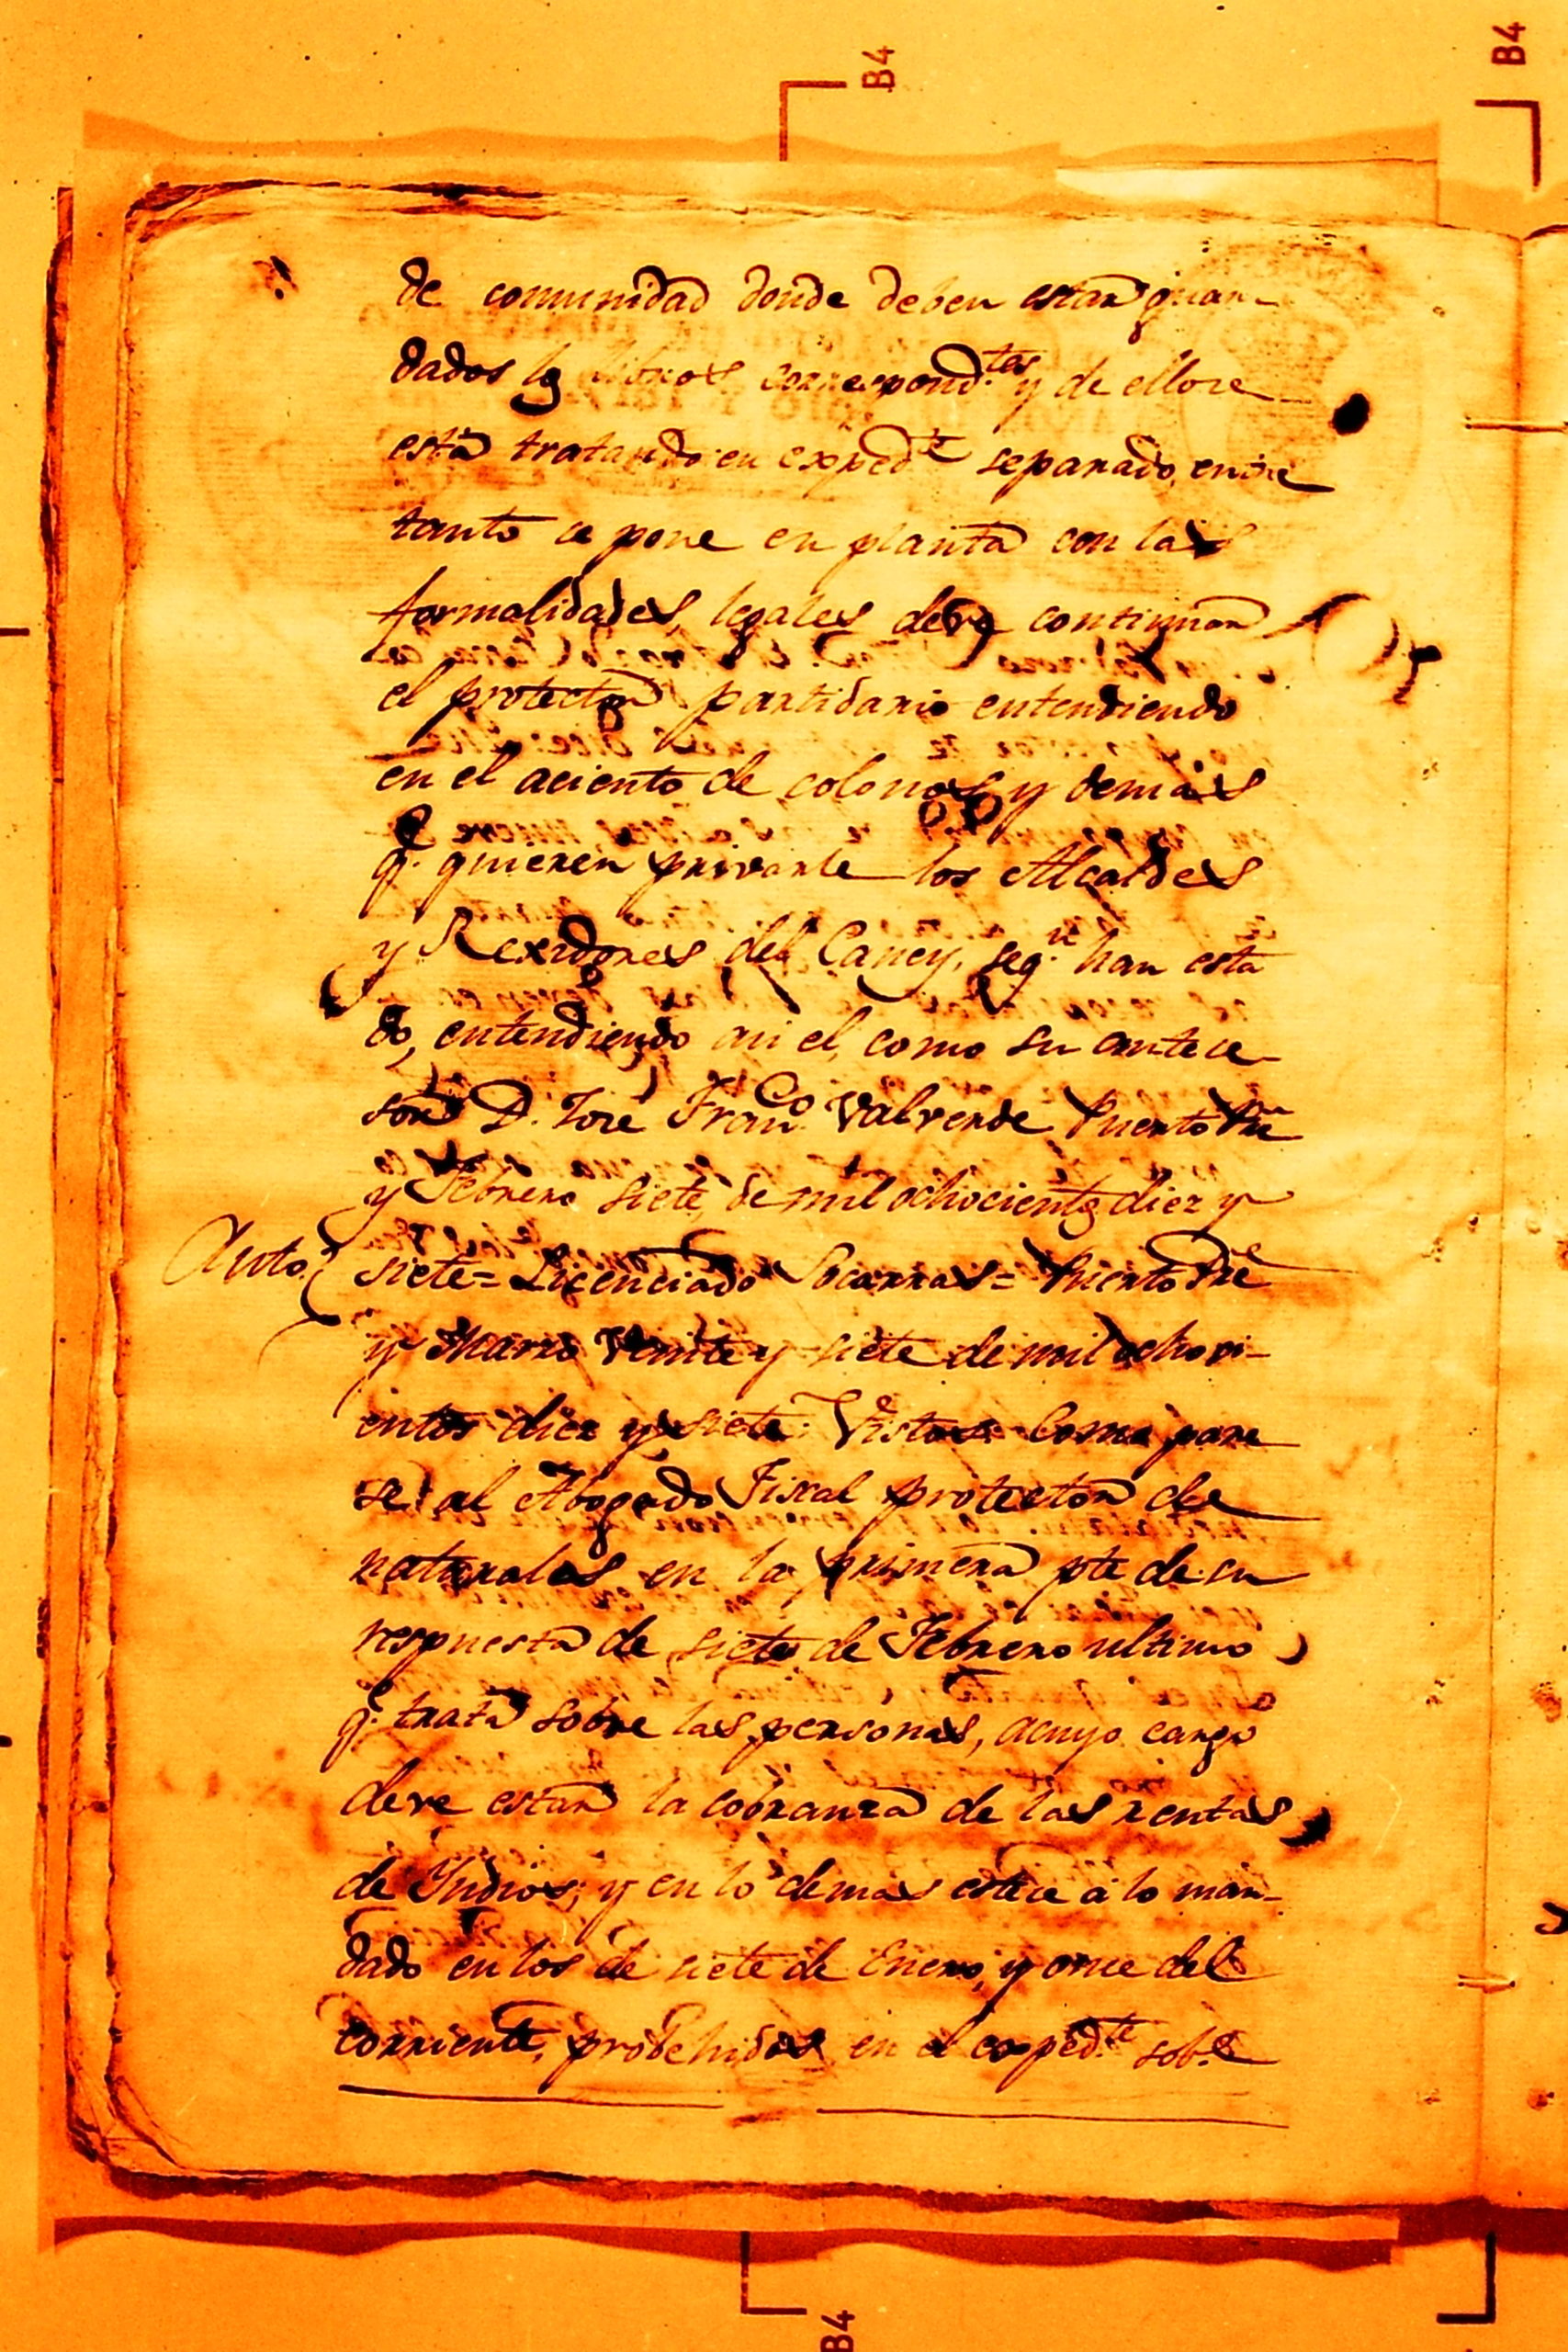 B4
B4
de comunidad donde deben estar guar-
dados los libros correspond.tes y de ellose
está tratando en exped.te separado, entre
tanto se pone en planta con las
formalidades, legales deve continuar
el protector partidario entendiendo
en el aciento de colonos y demás
q.e quieren privarle los Alcaldes
y Rexidores del Caney, seg.n han esta
do, entendiendo asi el, como su antece-
sor D. José Fran.co Valverde Puerto Pñe
y Febrero siete, de mil ochocientos diez y
Auto. siete = Licenciado Socarras = Puerto Pñe
y Marzo veinte y siete de mil ochoci-
entos diez y siete: Vistos: Como pare
se al Abogado Fiscal protector de
naturales en la primera pte de su
respuesta de siete de Febrero ultimo
q.e trata sobre las personas, acuyo cargo
deve estar la cobranza de las rentas,
de Yndios; y en lo demas estece á lo man-
dado en los de siete de Enero, y once del
corriente, probehidos en el exped.te sob.e
B4